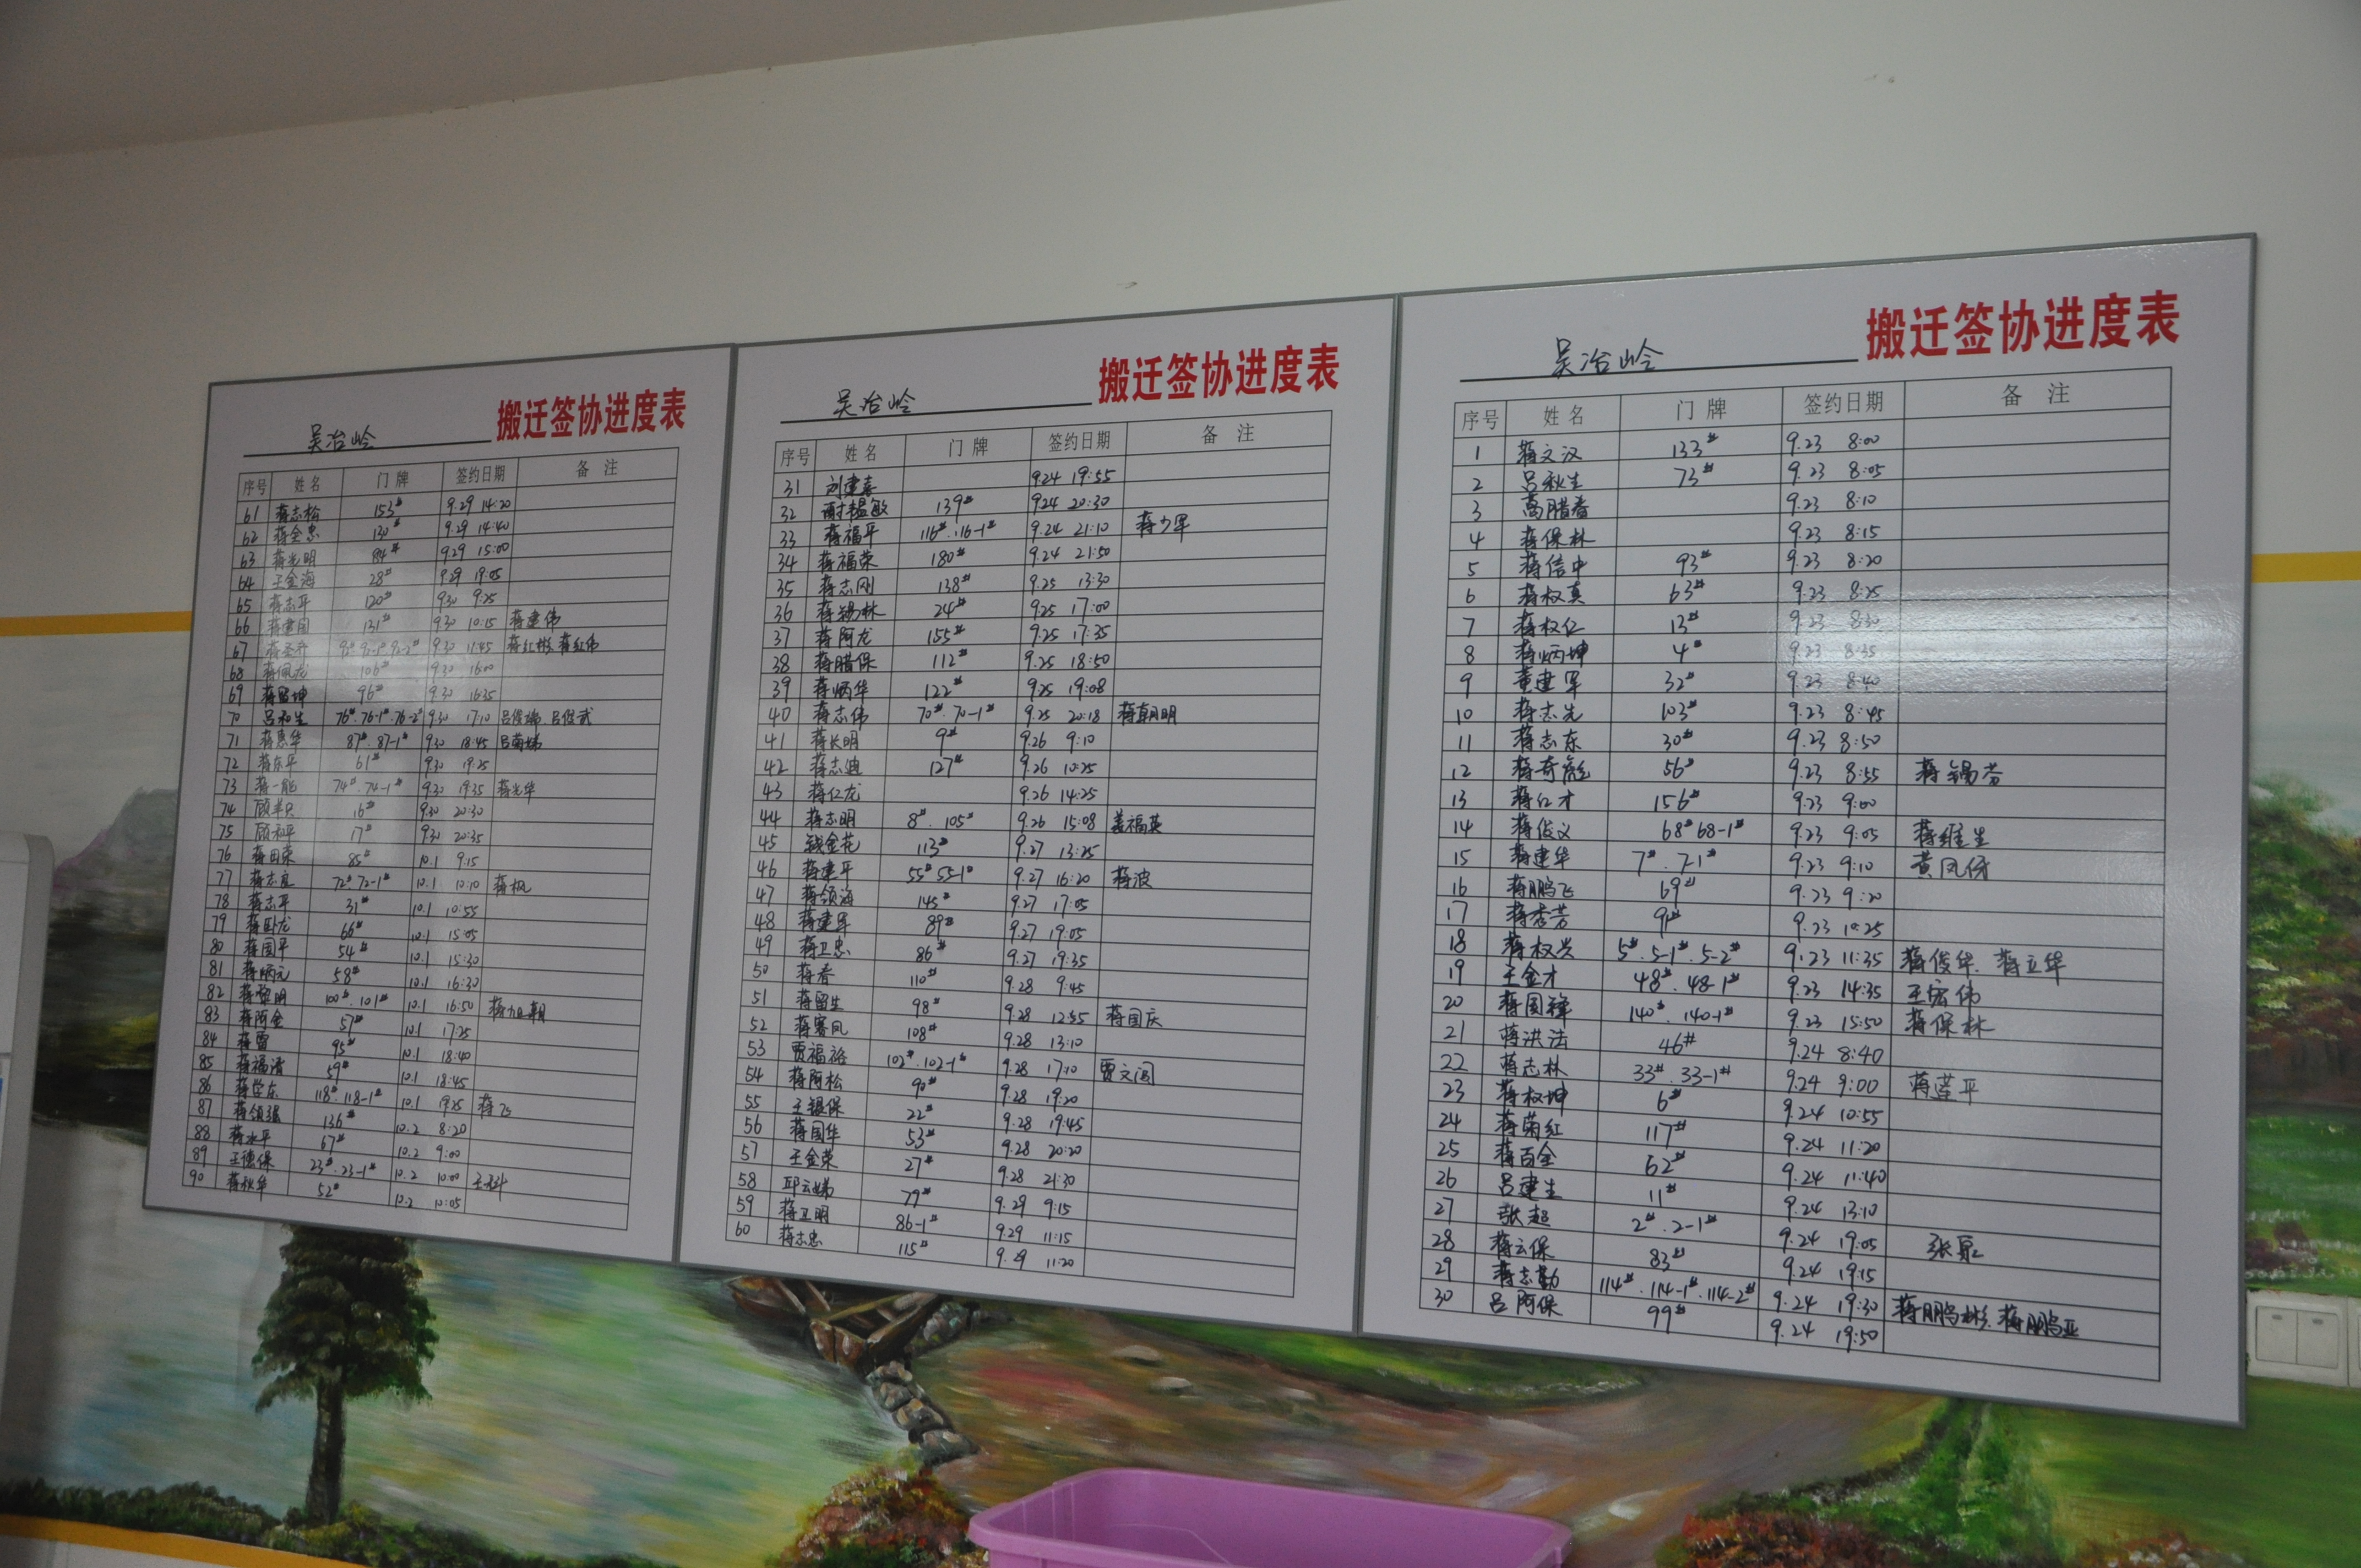 吴冶岭 搬迁签协进度表
序号 姓名 门牌 签约日期 备注
61 蒋志松 153# 9.29 14:20
62 蒋金忠 130# 9.29 14:40
63 蒋光明 84# 9.29 15:00
64 王金海 28# 9.29 19:05
65 蒋志平 120# 9.30 9:25
66 蒋建国 131# 9.30 10:15 蒋建伟
67 9.30 11:45 蒋红彬 蒋红伟
68 蒋佩龙 106# 9.30 16:00
69 蒋留坤 96# 9.30 16:35
70 吕和生 76#.76-1#.76-2# 9.30 17:10 吕俊武
71 蒋惠华 87#.87-1# 9.30 18:45 吕菊娣
72 蒋东平 61# 9.30 19:25
73 蒋一能 74#.74-1# 9.30 19:35 蒋光华
74 16# 9.30 20:30
75 顾和平 17# 9.30 20:35
76 蒋田荣 85# 10.1 9:15
77 蒋志良 72# 72-1# 10.1 10:10 蒋枫
78 蒋志平 31# 10.1 10:55
79 蒋卧龙 66# 10.1 15:05
80 蒋国平 54# 10.1 15:30
81 蒋炳元 58# 10.1 16:30
82 蒋黎明 100#.101# 10.1 16:50 蒋旭朝
83 蒋阿金 57# 10.1 17:25
84 蒋雷 95# 10.1 18:40
85 蒋福清 59# 10.1 18:45
86 蒋学东 118#.118-1# 10.1 19:25 蒋飞
87 蒋领强 136# 10.2 8:20
88 蒋水平 67# 10.2 9:00
89 王德保 23#.23-1# 10.2 10:00
90 蒋秋华 52# 10.2 10:05
吴冶岭 搬迁签协进度表
序号 姓名 门牌 签约日期 备注
31 刘建嘉 9.24 19:55
32 谢韫敏 139# 9.24 20:30
33 蒋福平 116#.116-1# 9.24 21:10 蒋少军
34 蒋福荣 180# 9.24 21:50
35 蒋志刚 138# 9.25 13:30
36 蒋锡林 24# 9.25 17:00
37 蒋阿龙 155# 9.25 17:35
38 蒋腊保 112# 9.25 18:50
39 蒋炳华 122# 9.25 19:08
40 蒋志伟 70#.70-1# 9.25 20:18 蒋朝明
41 蒋长明 9# 9.26 9:10
42 蒋志迪 127# 9.26 10:25
43 蒋仁龙 9.26 14:25
44 蒋志明 8#.105# 9.26 15:08 姜福英
45 钱金花 113# 9.27 13:25
46 蒋建平 55# 55-1# 9.27 16:20 蒋波
47 蒋领海 145# 9.27 17:05
48 蒋建军 89# 9.27 19:05
49 蒋卫忠 86# 9.27 19:35
50 蒋春 110# 9.28 9:45
51 蒋留生 98# 9.28 12:55 蒋国庆
52 蒋赛凤 108# 9.28 13:10
53 贾福裕 102#.102-1# 9.28 17:10
54 蒋阿松 90# 9.28 19:20
55 王银保 22# 9.28 19:45
56 蒋国华 53# 9.28 20:20
57 王金荣 27# 9.28 21:30
58 邱云娣 79# 9.29 9:15
59 蒋卫明 86-1# 9.29 11:15
60 蒋志忠 115# 9.29 11:20
吴冶岭 搬迁签协进度表
序号 姓名 门牌 签约日期 备注
1 蒋文汉 133# 9.23 8:00
2 吕秋生 73# 9.23 8:05
3 高腊春 9.23 8:10
4 蒋保林 9.23 8:15
5 蒋信中 93# 9.23 8:20
6 蒋权真 63# 9.23 8:25
7 蒋权仁 13# 9.23 8:30
8 蒋炳坤 4# 9.23 8:35
9 董建军 32# 9.23 8:40
10 蒋志先 103# 9.23 8:45
11 蒋志东 30# 9.23 8:50
12 蒋奇彪 56# 9.23 8:55 蒋锡芬
13 蒋仁才 156# 9.23 9:00
14 蒋俊义 68# 68-1# 9.23 9:05 蒋维生
15 蒋建华 7#.7-1# 9.23 9:10 黄凤仔
16 蒋鹏飞 69# 9.23 9:20
17 蒋秀芳 91# 9.23 10:25
18 蒋权兴 5#.5-1#.5-2# 9.23 11:35 蒋俊华. 蒋立华
19 王金才 48#.48-1# 9.23 14:35 王宏伟
20 蒋国锋 140#.140-1# 9.23 15:50 蒋保林
21 蒋洪法 46# 9.24 8:40
22 蒋志林 33#.33-1# 9.24 9:00 蒋莲平
23 蒋权坤 6# 9.24 10:55
24 蒋菊红 117# 9.24 11:20
25 蒋百金 62# 9.24 11:40
26 吕建生 11# 9.24 13:10
27 张超 2#.2-1# 9.24 19:05
28 蒋云保 83# 9.24 19:15
29 蒋志勤 114#.114-1#.114-2# 9.24 19:30 蒋鹏彬. 蒋鹏亚
30 吕阿保 99# 9.24 19:50